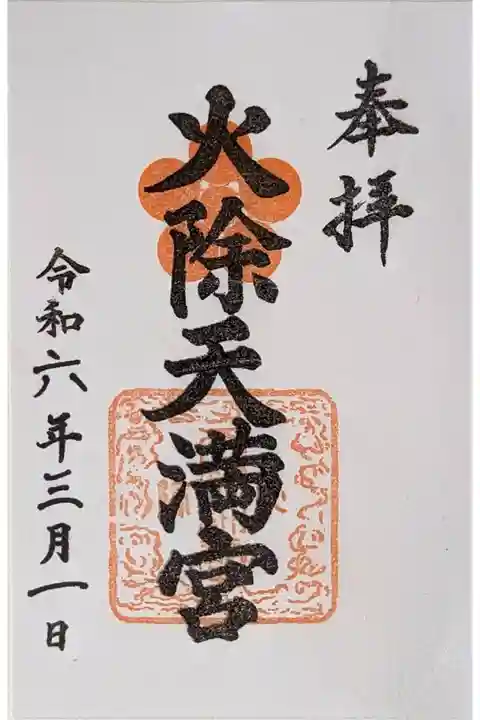 奉拝
火除天満宮
令和六年三月一日